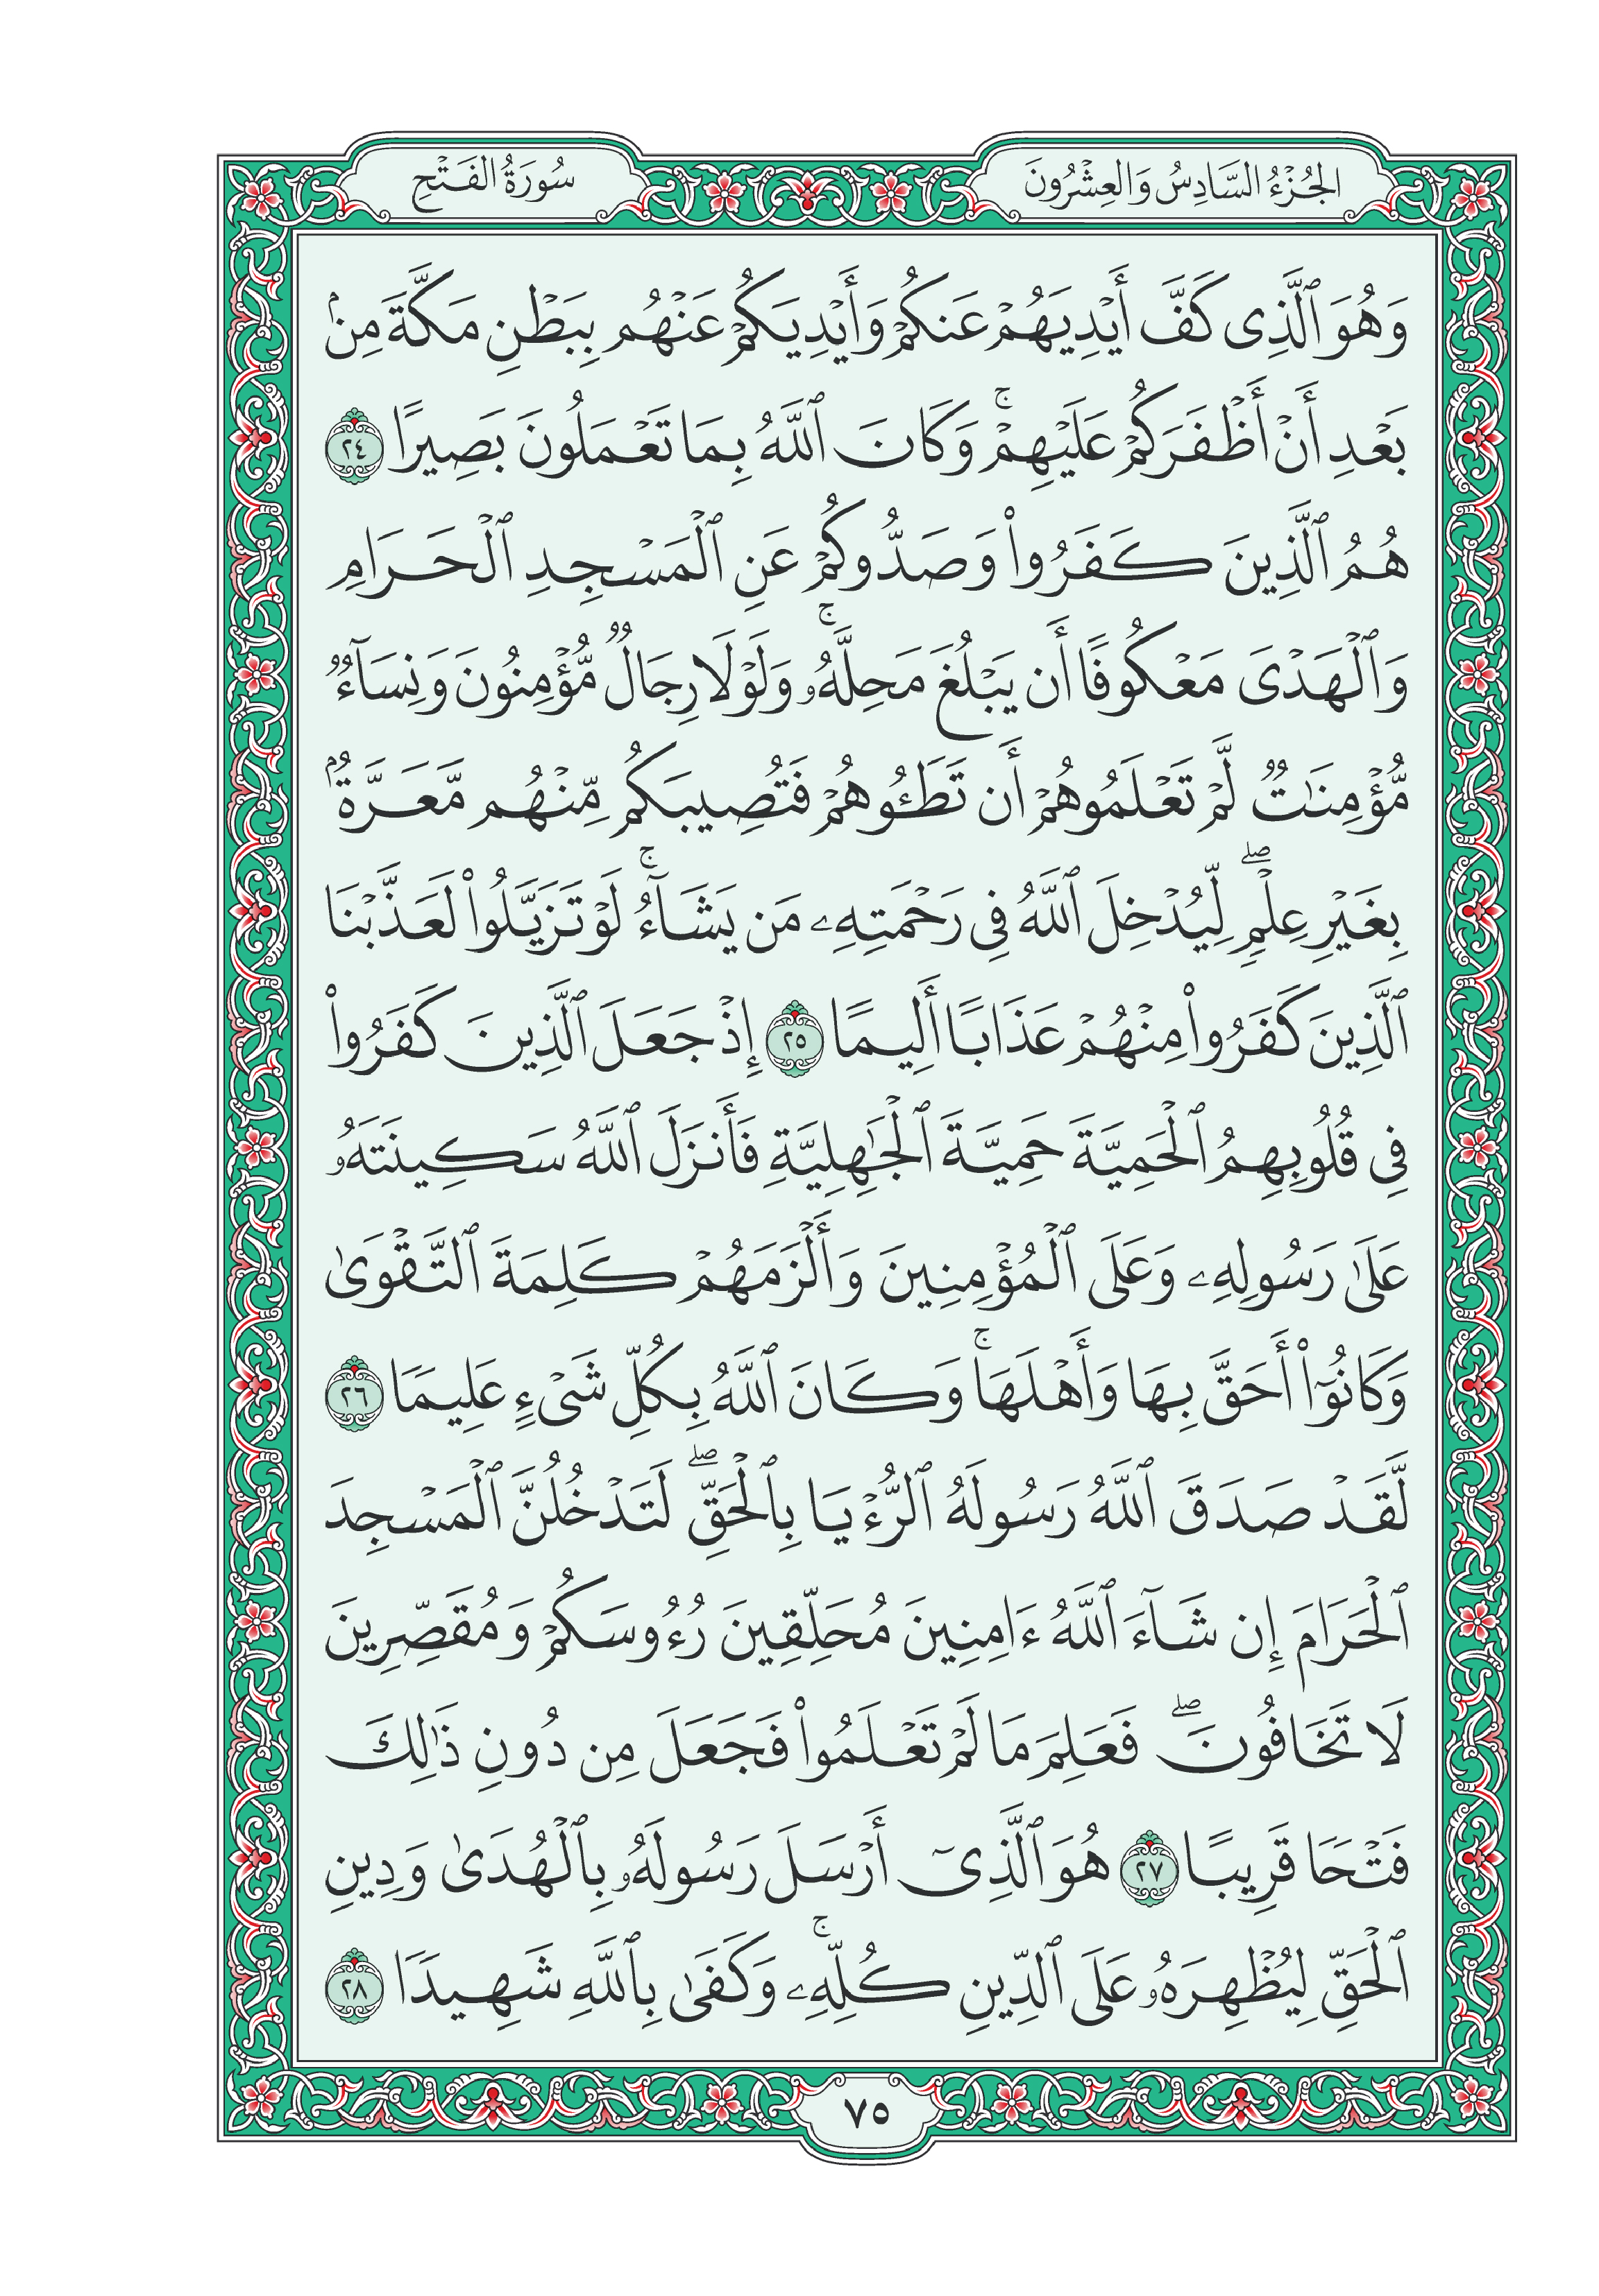 الجُزْءُ السَّادِسُ وَالعِشْرُونَ
سُورَةُ الفَتْحِ
وَهُوَ ٱلَّذِى كَفَّ أَيْدِيَهُمْ عَنكُمْ وَأَيْدِيَكُمْ عَنْهُم بِبَطْنِ مَكَّةَ مِنۢ
بَعْدِ أَنْ أَظْفَرَكُمْ عَلَيْهِمْۚ وَكَانَ ٱللَّهُ بِمَا تَعْمَلُونَ بَصِيرًا ٢٤
هُمُ ٱلَّذِينَ كَفَرُوا۟ وَصَدُّوكُمْ عَنِ ٱلْمَسْجِدِ ٱلْحَرَامِ
وَٱلْهَدْىَ مَعْكُوفًا أَن يَبْلُغَ مَحِلَّهُۥۚ وَلَوْلَا رِجَالٌ مُّؤْمِنُونَ وَنِسَآءٌ
مُّؤْمِنَٰتٌ لَّمْ تَعْلَمُوهُمْ أَن تَطَـُٔوهُمْ فَتُصِيبَكُم مِّنْهُم مَّعَرَّةٌۢ
بِغَيْرِ عِلْمٍۖ لِّيُدْخِلَ ٱللَّهُ فِى رَحْمَتِهِۦ مَن يَشَآءُۚ لَوْ تَزَيَّلُوا۟ لَعَذَّبْنَا
ٱلَّذِينَ كَفَرُوا۟ مِنْهُمْ عَذَابًا أَلِيمًا ٢٥ إِذْ جَعَلَ ٱلَّذِينَ كَفَرُوا۟
فِى قُلُوبِهِمُ ٱلْحَمِيَّةَ حَمِيَّةَ ٱلْجَٰهِلِيَّةِ فَأَنزَلَ ٱللَّهُ سَكِينَتَهُۥ
عَلَىٰ رَسُولِهِۦ وَعَلَى ٱلْمُؤْمِنِينَ وَأَلْزَمَهُمْ كَلِمَةَ ٱلتَّقْوَىٰ
وَكَانُوٓا۟ أَحَقَّ بِهَا وَأَهْلَهَاۚ وَكَانَ ٱللَّهُ بِكُلِّ شَىْءٍ عَلِيمًا ٢٦
لَّقَدْ صَدَقَ ٱللَّهُ رَسُولَهُ ٱلرُّءْيَا بِٱلْحَقِّۖ لَتَدْخُلُنَّ ٱلْمَسْجِدَ
ٱلْحَرَامَ إِن شَآءَ ٱللَّهُ ءَامِنِينَ مُحَلِّقِينَ رُءُوسَكُمْ وَمُقَصِّرِينَ
لَا تَخَافُونَۖ فَعَلِمَ مَا لَمْ تَعْلَمُوا۟ فَجَعَلَ مِن دُونِ ذَٰلِكَ
فَتْحًا قَرِيبًا ٢٧ هُوَ ٱلَّذِىٓ أَرْسَلَ رَسُولَهُۥ بِٱلْهُدَىٰ وَدِينِ
ٱلْحَقِّ لِيُظْهِرَهُۥ عَلَى ٱلدِّينِ كُلِّهِۦۚ وَكَفَىٰ بِٱللَّهِ شَهِيدًا ٢٨
٧٥